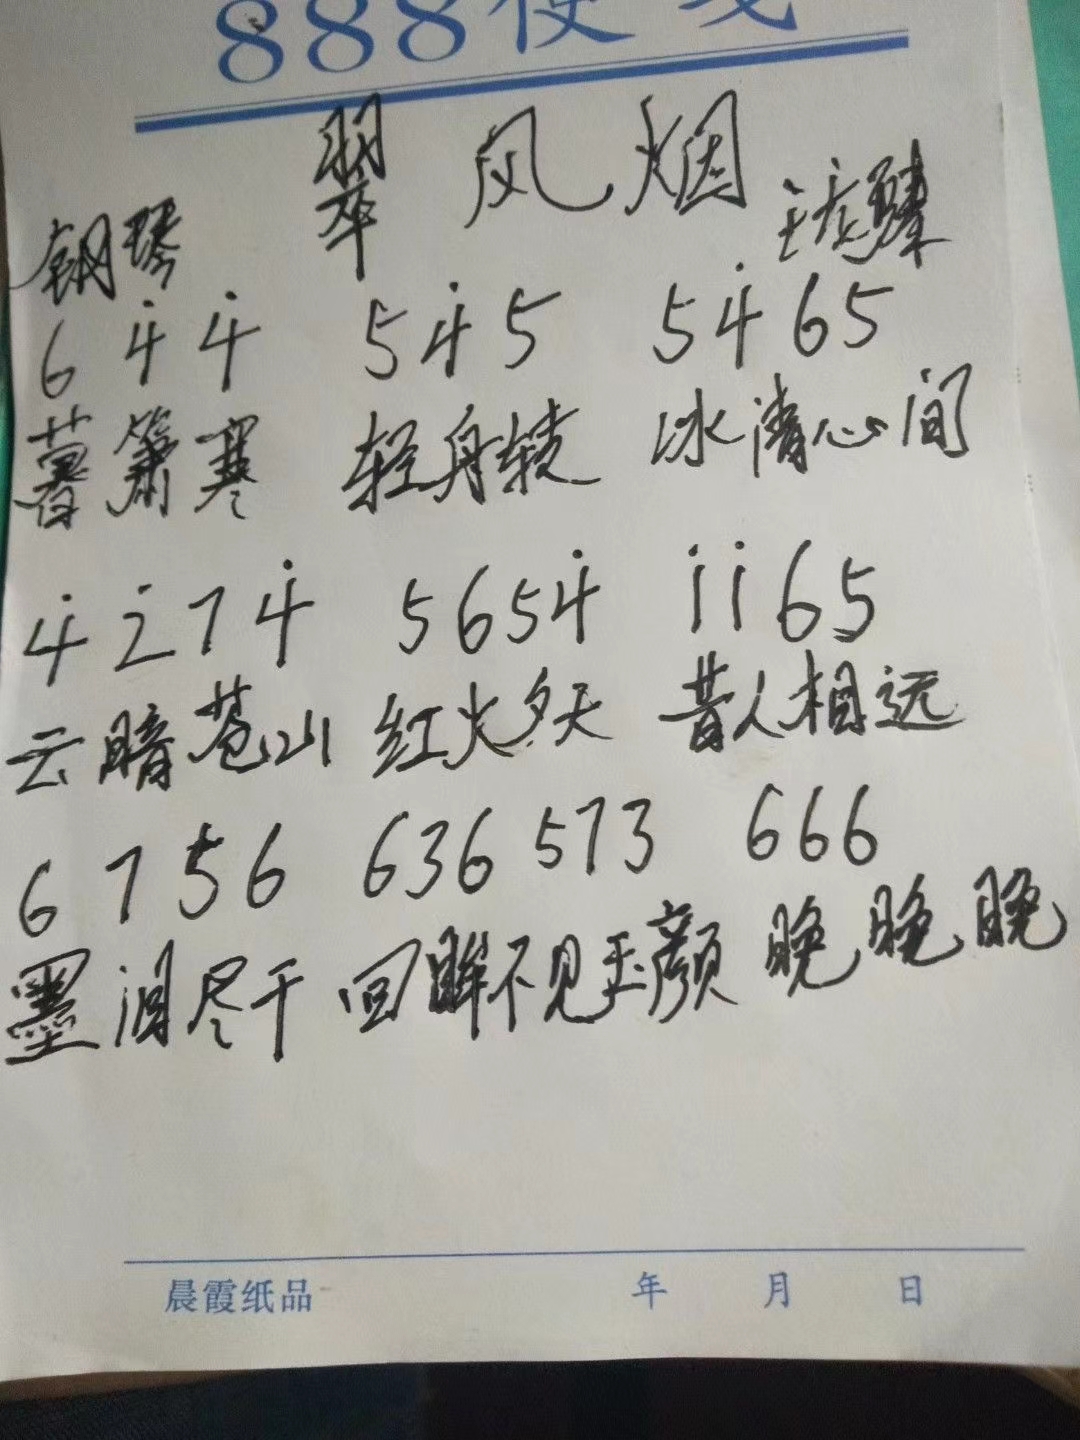 888便笺
翠风烟
钢琴
6 4̇ 4̇ 5 4̇ 5 5 4̇ 6 5
暮箫寒 轻舟转 冰清心间
4̇ 2̇ 7 4̇ 5 6 5 4̇ 1̇ 1̇ 6 5
云暗苍山 红火夕天 昔人相远
6 7 5 6 6 3 6 5 7 3 6 6 6
墨泪尽干 回眸不见玉颜 晚晚晚
晨霞纸品 年 月 日